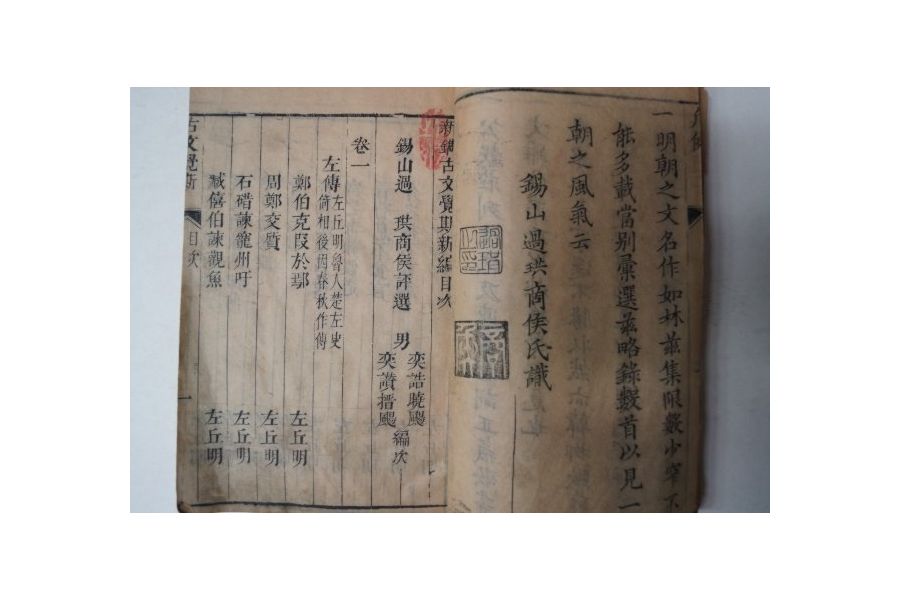 一明朝之文名作如林茲集限數少窄不
能多載當别彙選茲略錄數首以見一
朝之風氣云
錫山過珙商侯氏識
新鐫古文覺斯新編目次
錫山過 珙商侯評選 男 奕誥曉颺 奕讚搢颺 編次
卷一
左傳 左丘明魯人楚左史
倚相後因春秋作傳
鄭伯克段於鄢 左丘明
周鄭交質 左丘明
石碏諫寵州吁 左丘明
臧僖伯諫觀魚 左丘明
古文覺斯 目次 一